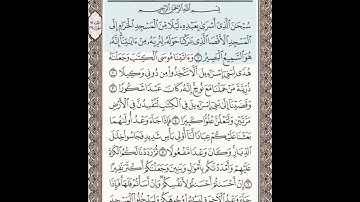 بِسْمِ اللَّهِ الرَّحْمَٰنِ الرَّحِيمِ
سُبْحَٰنَ الَّذِي أَسْرَىٰ بِعَبْدِهِ لَيْلًا مِنَ الْمَسْجِدِ الْحَرَامِ إِلَى
الْمَسْجِدِ الْأَقْصَا الَّذِي بَٰرَكْنَا حَوْلَهُ لِنُرِيَهُ مِنْ ءَايَٰتِنَا إِنَّهُ
هُوَ السَّمِيعُ الْبَصِيرُ ١ وَءَاتَيْنَا مُوسَى الْكِتَٰبَ وَجَعَلْنَٰهُ
هُدًى لِبَنِي إِسْرَٰٓءِيلَ أَلَّا تَتَّخِذُوا مِنْ دُونِي وَكِيلًا ٢
ذُرِّيَّةَ مَنْ حَمَلْنَا مَعَ نُوحٍ إِنَّهُ كَانَ عَبْدًا شَكُورًا ٣
وَقَضَيْنَا إِلَىٰ بَنِي إِسْرَٰٓءِيلَ فِي الْكِتَٰبِ لَتُفْسِدُنَّ فِي الْأَرْضِ
مَرَّتَيْنِ وَلَتَعْلُنَّ عُلُوًّا كَبِيرًا ٤ فَإِذَا جَاءَ وَعْدُ أُولَىٰهُمَا
بَعَثْنَا عَلَيْكُمْ عِبَادًا لَنَا أُولِي بَأْسٍ شَدِيدٍ فَجَاسُوا خِلَٰلَ
الدِّيَارِ وَكَانَ وَعْدًا مَفْعُولًا ٥ ثُمَّ رَدَدْنَا لَكُمُ الْكَرَّةَ
عَلَيْهِمْ وَأَمْدَدْنَٰكُمْ بِأَمْوَٰلٍ وَبَنِينَ وَجَعَلْنَٰكُمْ أَكْثَرَ نَفِيرًا
٦ إِنْ أَحْسَنْتُمْ أَحْسَنْتُمْ لِأَنْفُسِكُمْ وَإِنْ أَسَأْتُمْ فَلَهَا فَإِذَا
جَاءَ وَعْدُ الْآخِرَةِ